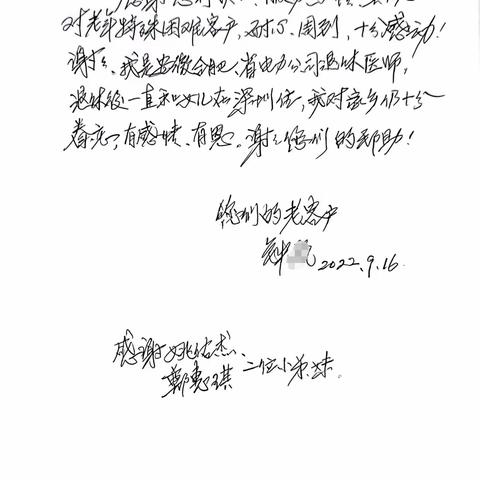 对老年特殊困难客户，耐心、周到，十分感动！
谢谢。我是安徽合肥、省电力公司退休医师，
退休后一直和女儿在深圳住，我对家乡仍十分
眷恋，有感情、有恩。谢谢您们的帮助！
您们的老客户
2022.9.16.
感谢姚佑杰、
鄭惠琪 二位小弟妹。